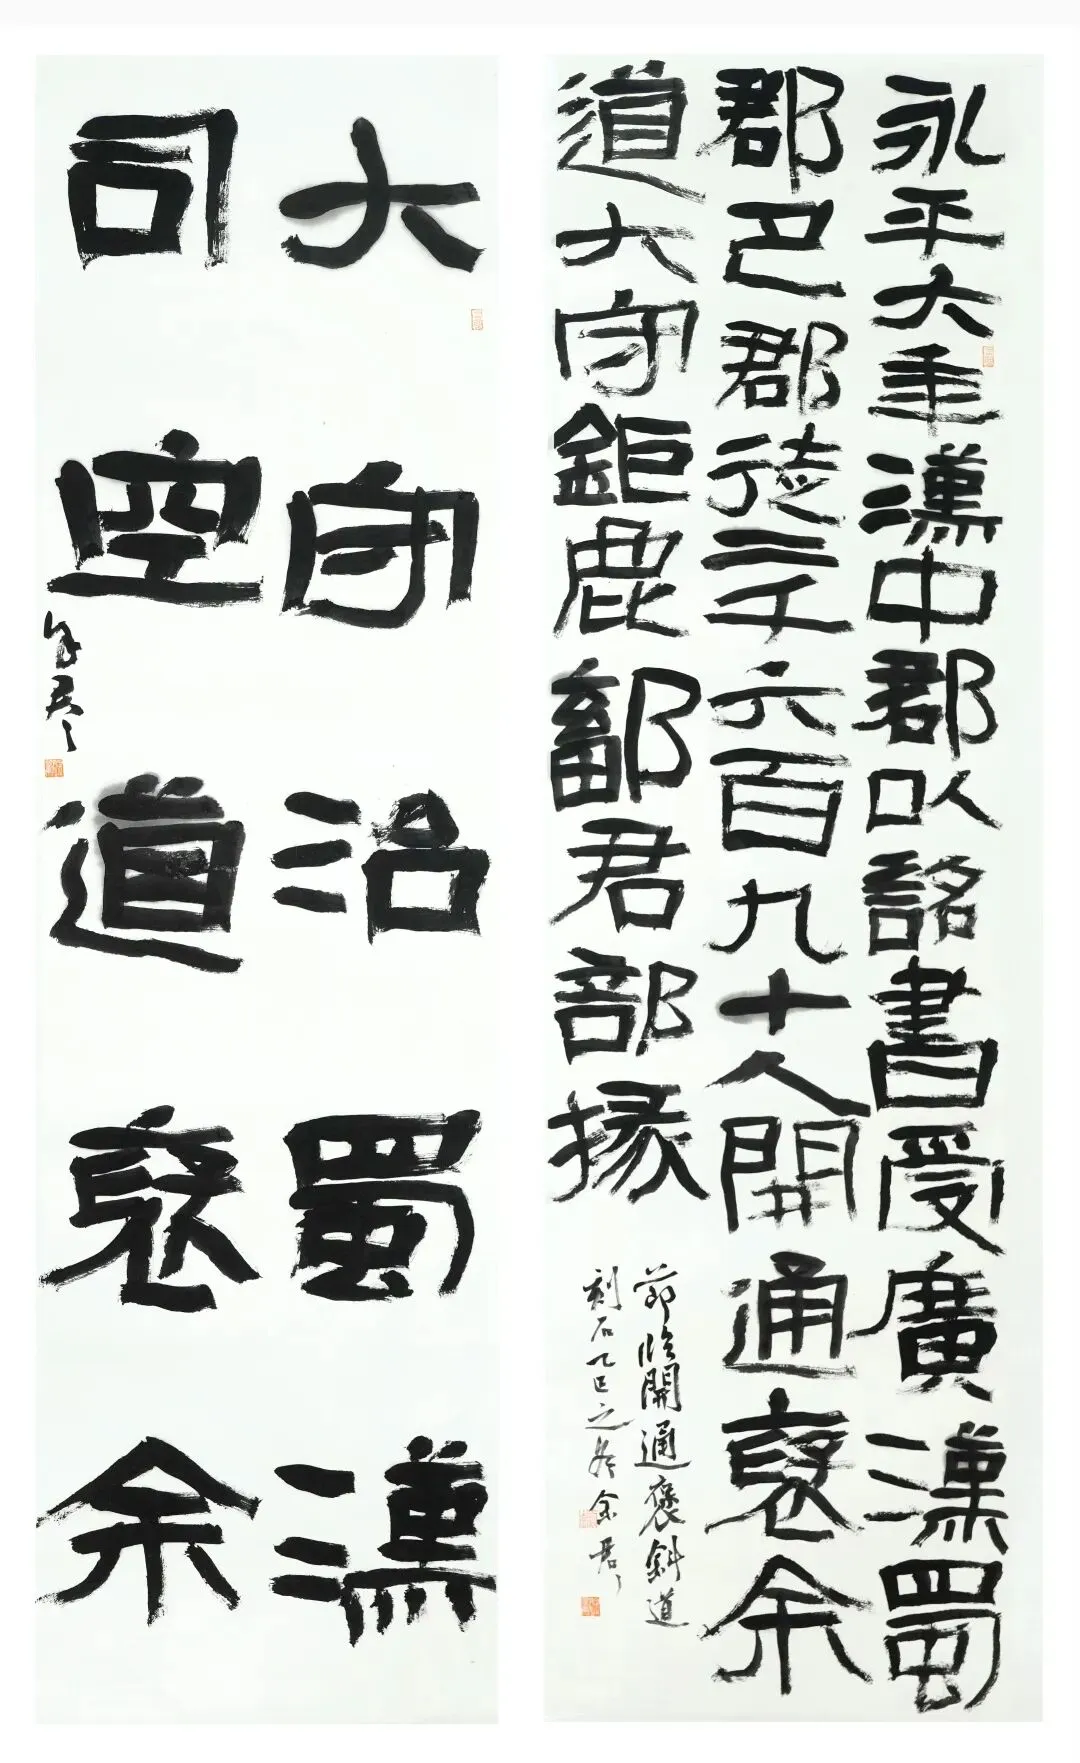 永平六年漢中郡以詔書受廣漢蜀
郡巴郡徒二千六百九十人開通褒余
道大守鉅鹿鄐君部掾
節臨開通褒斜道
刻石乙巳之冬
大守治蜀漢
司空道褒余